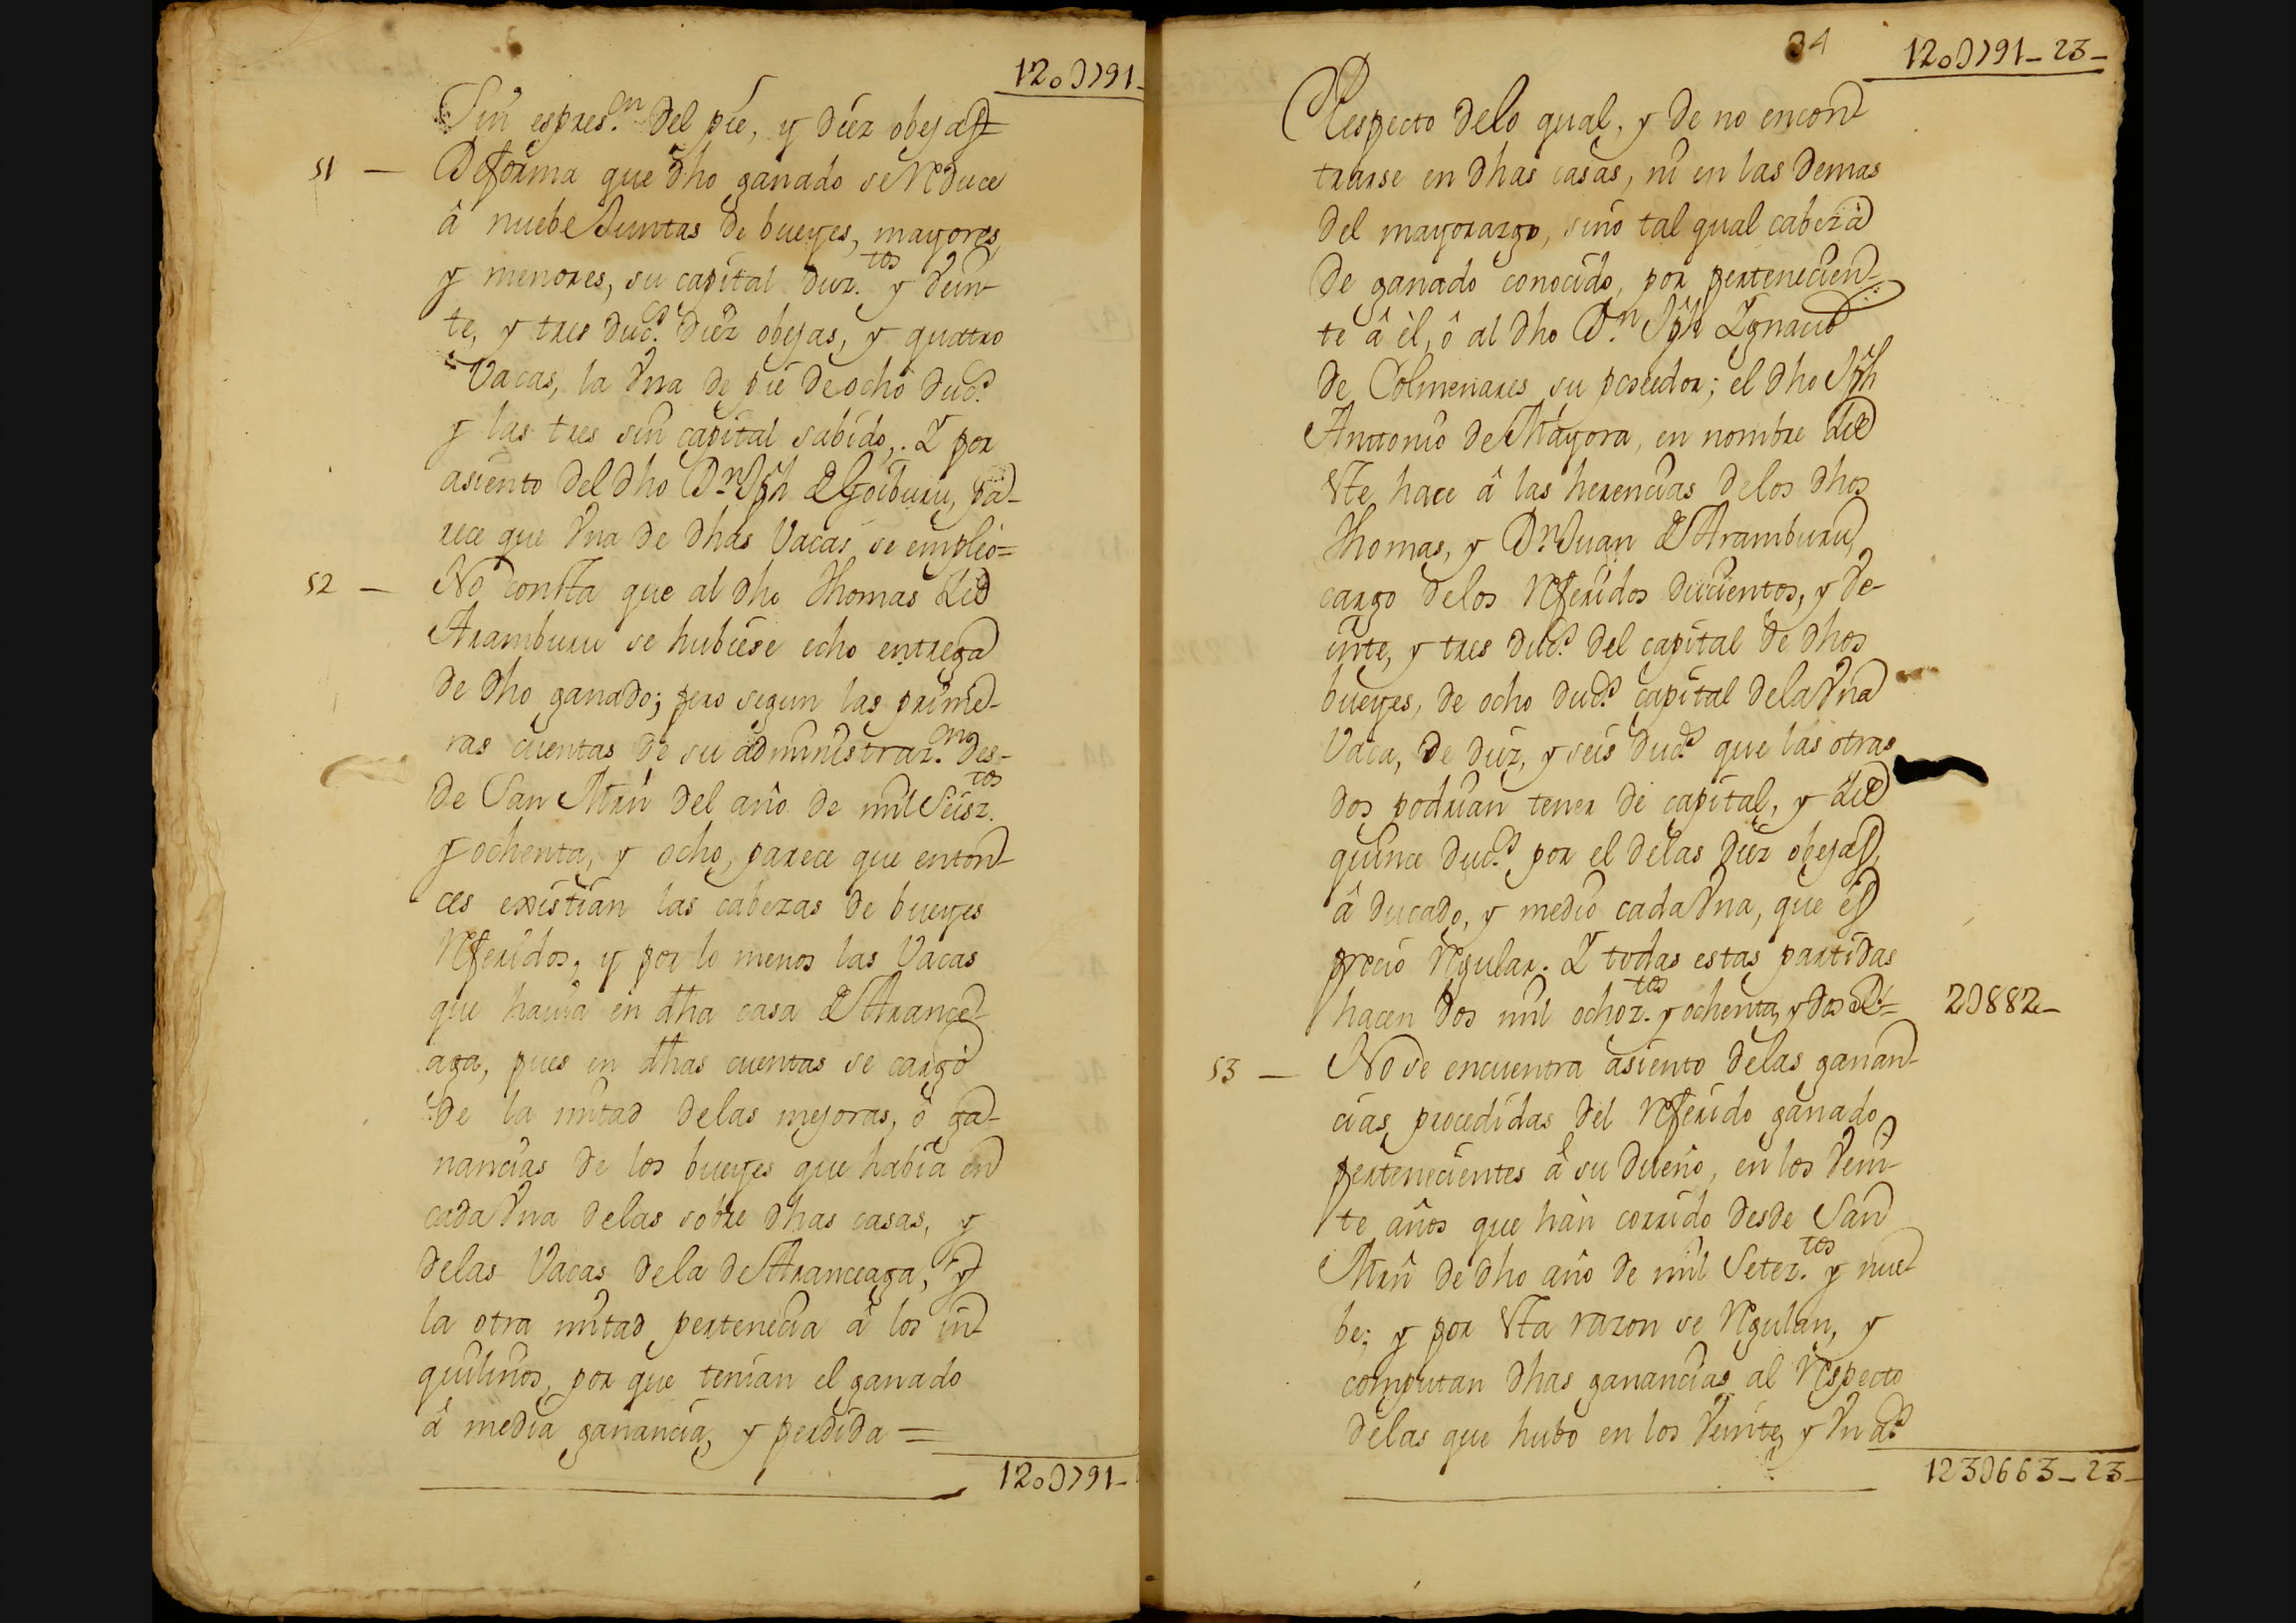 120D791-
Sin espres.on del pie, y diez obejas=
51 — De forma que dho ganado se reduce
â nuebe Juntas de bueyes, mayores,
y menores, su capital duz.tos y vein-
te, y tres duc.s diez obejas, y quatro
Vacas, la vna de pie de ocho duc.s
y las tres sin capital sabido,. Y por
asiento del dho D.n Jph de Goiburu, pa-
rece que vna de dhas Vacas se empleo=
52 — No consta que al dho Thomas de
Aramburu se hubiese echo entrega
de dho ganado; pero segun las prime-
ras cuentas de su administraz.on des-
de San Mrñ del año de mil Seisz.tos
y ochenta, y ocho, parece que enton-
ces existian las cabezas de bueyes
referidos, y por lo menos las Vacas
que havia en dha casa de Arance-
aga, pues en dhas cuentas se cargò
de la mitad delas mejoras, ô ga-
nancias de los bueyes que habia en
cada vna delas sobre dhas casas, y
delas Vacas dela de Aranceaga, y
la otra mitad pertenecia â los in-
quilinos, por que tenian el ganado
â media ganancia, y perdida =
120D791-
34
120D791-23-
Respecto delo qual, y de no encon-
trarse en dhas casas, ni en las demas
del mayorazgo, sino tal qual cabeza
de ganado conocido, por pertenecien-
te â èl, ô al dho D.n Jph Ygnacio
de Colmenares su poseedor; el dho Jph
Antonio de Mayora, en nombre de
Vte, hace â las herencias delos dhos
Thomas, y D.n Juan de Aramburu,
cargo delos referidos ducientos, y ve-
inte, y tres duc.s del capital de dhos
bueyes, de ocho duc.s capital dela vna
Vaca, de diez, y seis duc.s que las otras
dos podrian tener de capital, y de
quince duc.s por el delas diez obejas,
â ducado, y medio cada vna, que es
precio regular. Y todas estas partidas
hacen dos mil ochoz.tos y ochenta, y dos R.s= 2D882-
53 — No se encuentra asiento delas ganan-
cias, procedidas del referido ganado,
pertenecientes â su dueño, en los vein-
te años que hàn corrido desde San
Mrñ de dho año de mil Setez.tos y nue-
be; y por Vta razon se regulan, y
computan dhas ganancias al respecto
delas que hubo en los veinte, y vn a.s
123D663-23-